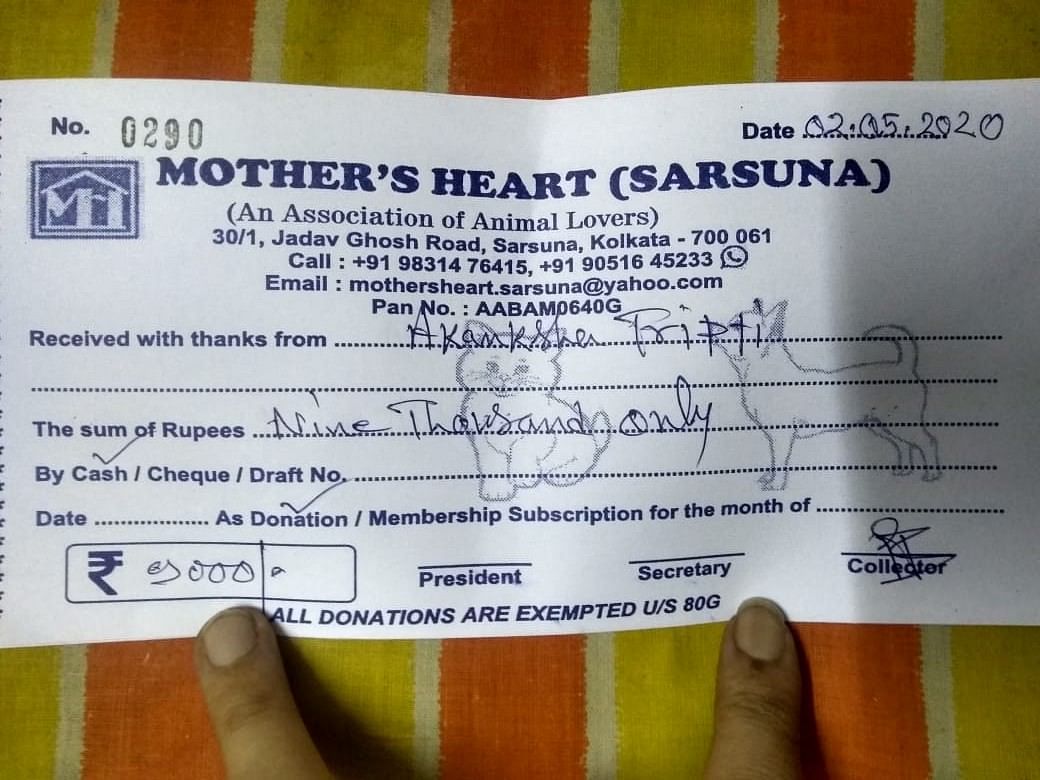 No. 0290 Date 02.05.2020
MOTHER'S HEART (SARSUNA)
(An Association of Animal Lovers)
30/1, Jadav Ghosh Road, Sarsuna, Kolkata - 700 061
Call : +91 98314 76415, +91 90516 45233
Email : mothersheart.sarsuna@yahoo.com
Pan No. : AABAM0640G
Received with thanks from Akanksha Tripti
The sum of Rupees Nine Thousand only
By Cash / Cheque / Draft No.
Date .................. As Donation / Membership Subscription for the month of
₹ 9000/-
President Secretary Collector
ALL DONATIONS ARE EXEMPTED U/S 80G